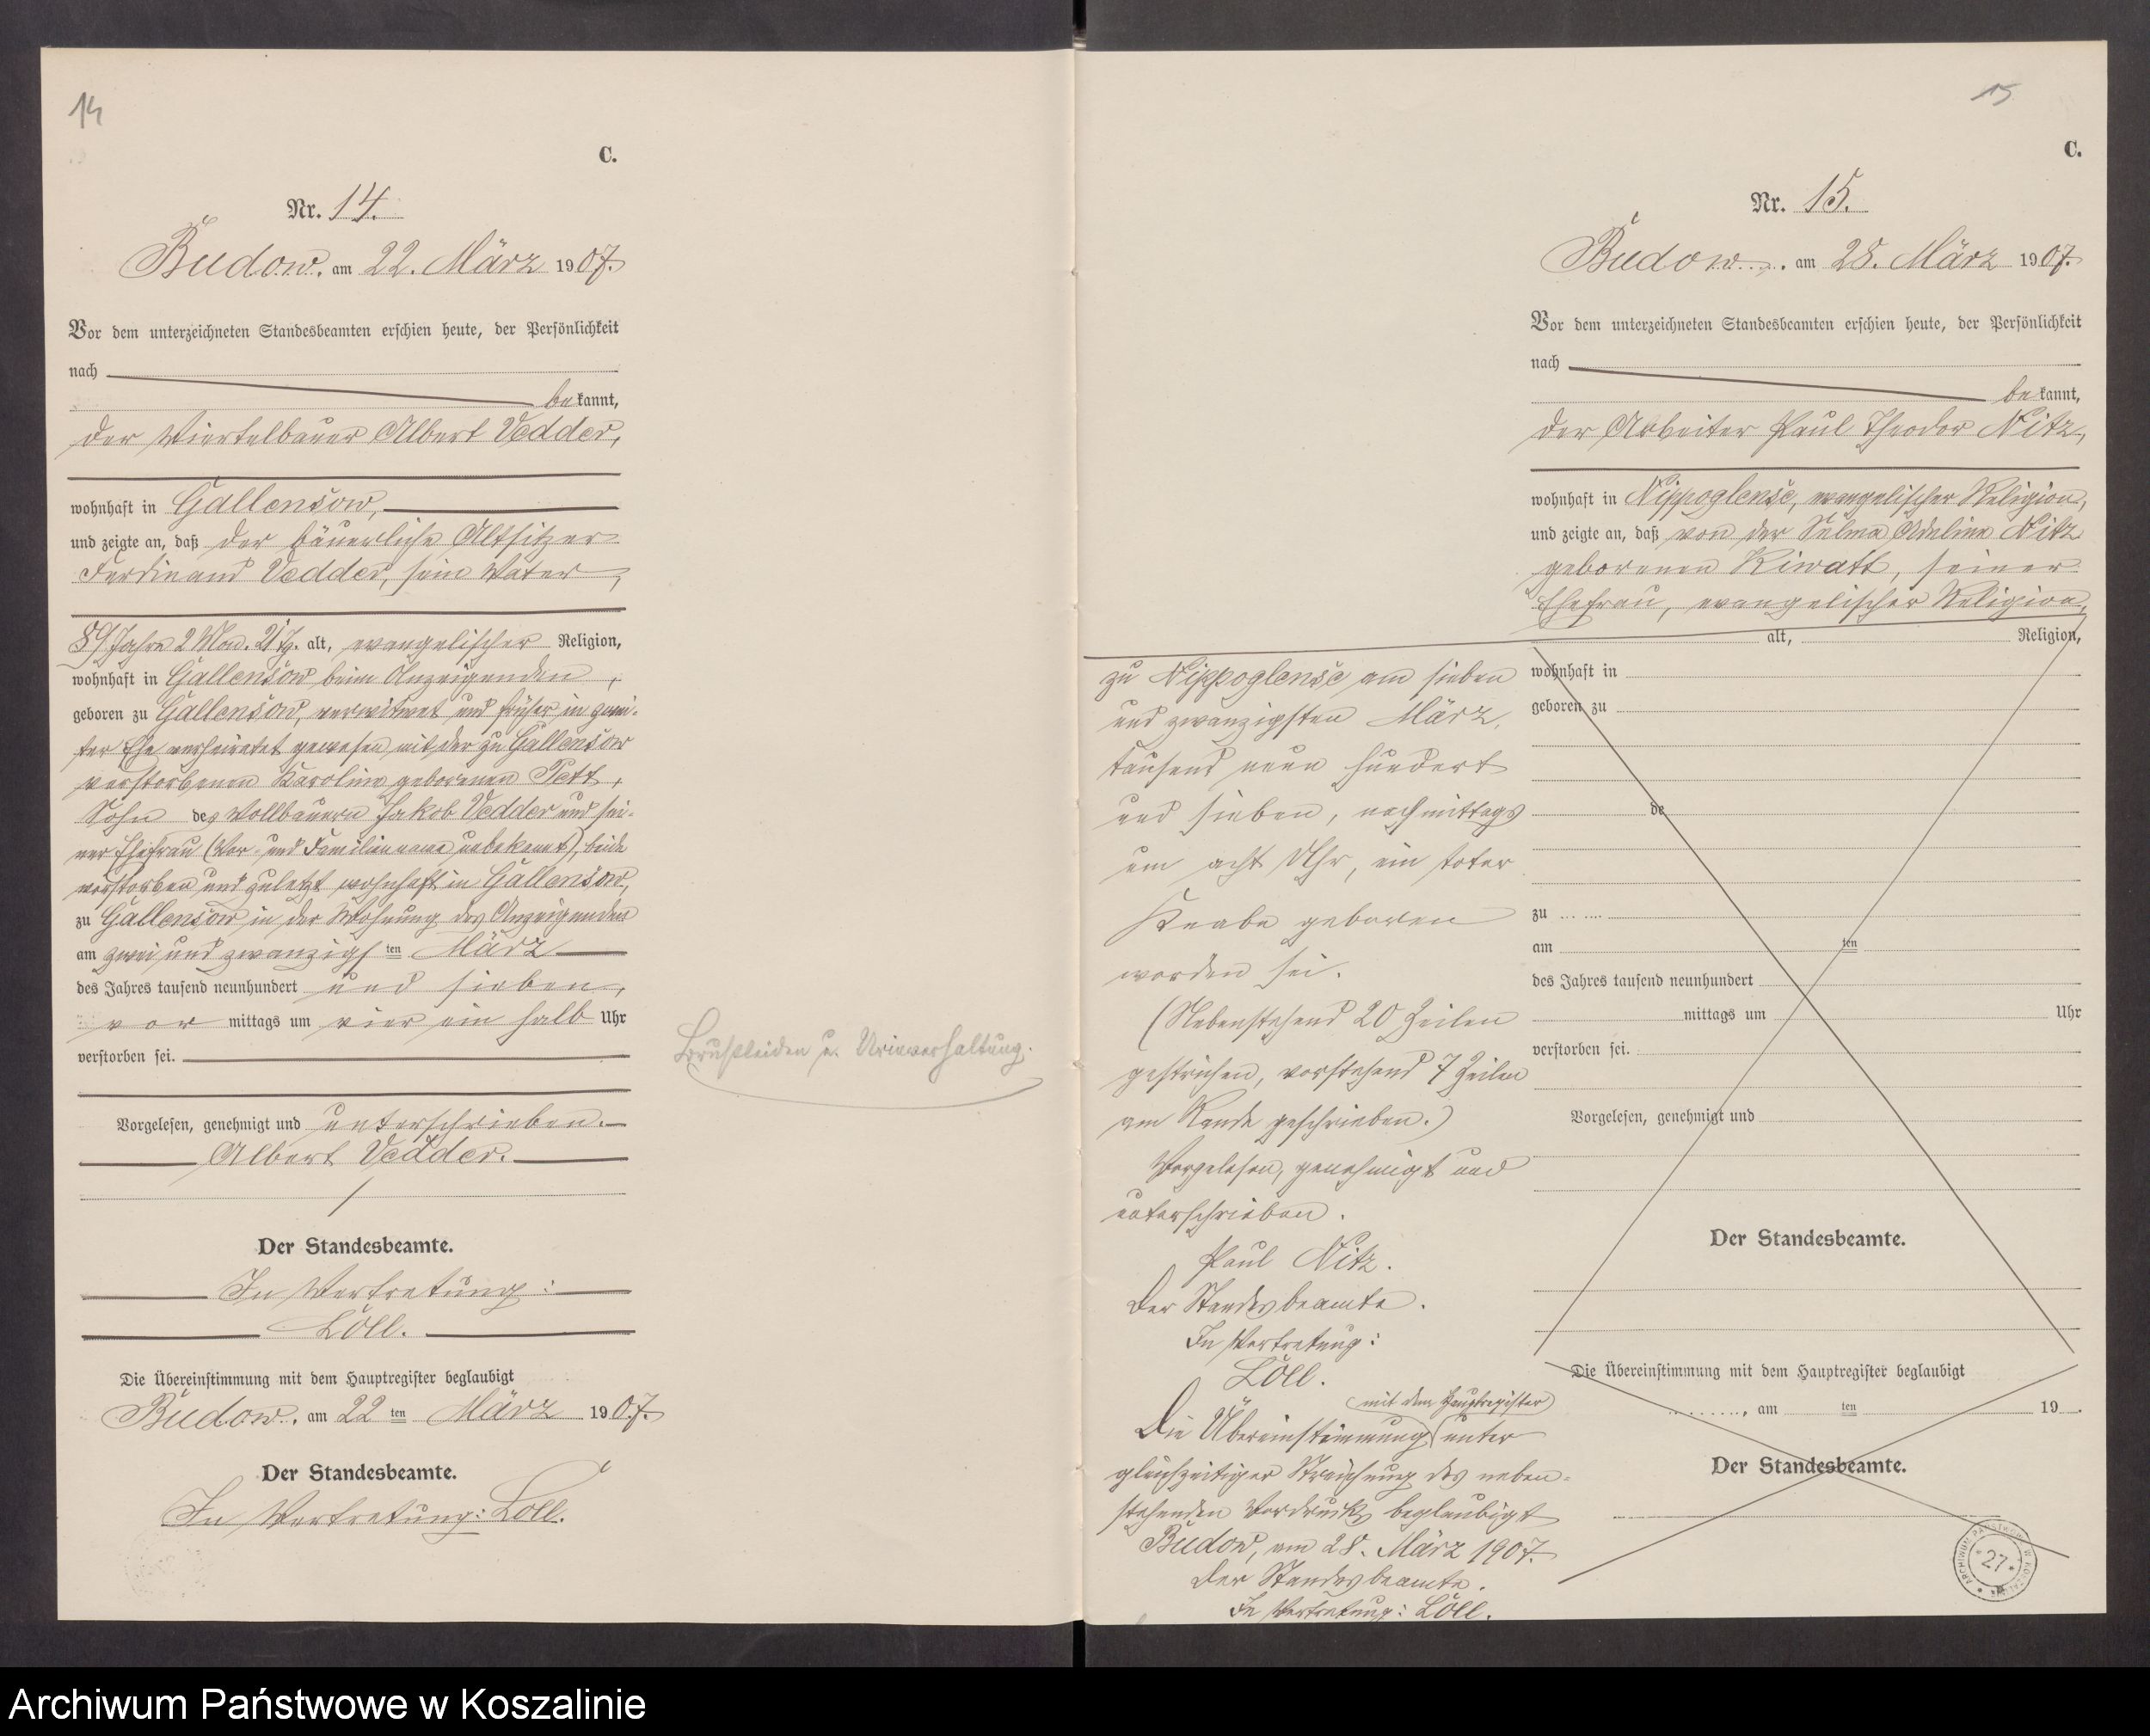 14
C.
Nr. 14.
Budow, am 22. März 1907.
Vor dem unterzeichneten Standesbeamten erschien heute, der Persönlichkeit
nach
bekannt,
der Viertelbauer Albert Vedder,
wohnhaft in Gallensow,
und zeigte an, daß der bäuerliche Altsitzer
Ferdinand Vedder, sein Vater,
89 Jahre 2 Mon. 21 Tg. alt, evangelischer Religion,
wohnhaft in Gallensow beim Anzeigenden,
geboren zu Gallensow, verwitwet und früher in zwei-
ter Ehe verheiratet gewesen mit der zu Gallensow
verstorbenen Karoline geborenen Pett,
Sohn des Vollbauern Jakob Vedder und sei-
ner Ehefrau (Vor- und Familienname unbekannt), beide
verstorben und zuletzt wohnhaft in Gallensow,
zu Gallensow in der Wohnung des Anzeigenden
am zwei und zwanzigsten März
des Jahres tausend neunhundert und sieben,
vor mittags um vier ein halb Uhr
verstorben sei.
Vorgelesen, genehmigt und unterschrieben.
Albert Vedder.
Der Standesbeamte.
In Vertretung:
Löll.
Die Übereinstimmung mit dem Hauptregister beglaubigt
Budow, am 22ten März 1907.
Der Standesbeamte.
In Vertretung: Löll.
Brustleiden u. Urinverhaltung.
15
C.
Nr. 15.
Budow, am 28. März 1907.
Vor dem unterzeichneten Standesbeamten erschien heute, der Persönlichkeit
nach
bekannt,
der Arbeiter Paul Theodor Nitz,
wohnhaft in Nippoglense, evangelischer Religion,
und zeigte an, daß von der Selma Adeline Nitz
geborenen Kiwatt, seiner
Ehefrau, evangelischer Religion,
alt, Religion,
wohnhaft in
geboren zu
de
zu
am ten
des Jahres tausend neunhundert
mittags um Uhr
verstorben sei.
Vorgelesen, genehmigt und
Der Standesbeamte.
Die Übereinstimmung mit dem Hauptregister beglaubigt
, am ten 19 .
Der Standesbeamte.
zu Nippoglense am sieben
und zwanzigsten März,
tausend neun hundert
und sieben, nachmittags
um acht Uhr, ein toter
Knabe geboren
worden sei.
(Nebenstehend 20 Zeilen
gestrichen, vorstehend 7 Zeilen
am Rande geschrieben.)
Vorgelesen, genehmigt und
unterschrieben.
Paul Nitz.
Der Standesbeamte.
In Vertretung:
Löll.
mit dem Hauptregister
Die Übereinstimmung unter
gleichzeitiger Streichung des neben-
stehenden Vordrucks beglaubigt
Budow, am 28. März 1907.
Der Standesbeamte.
In Vertretung: Löll.
27
Archiwum Państwowe w Koszalinie